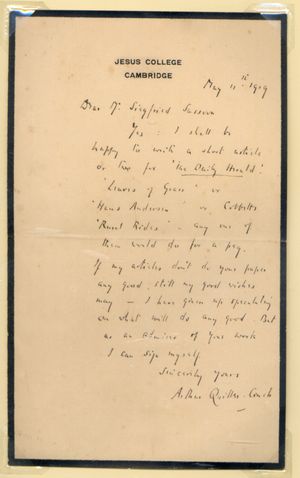 JESUS COLLEGE
CAMBRIDGE
May 11th 1919
Dear Mr Siegfried Sassoon
Yes: I shall be
happy to write a short article
or two for 'The Daily Herald'.
'Leaves of Grass' or
'Hans Andersen' or Cobbett's
'Rural Rides' - any one of
them would do for a peg.
If my articles don't do your paper
any good, still my good wishes
may - I have given up speculating
on what will do any good. But
as an admirer of your work
I can sign myself
Sincerely yours
Arthur Quiller-Couch